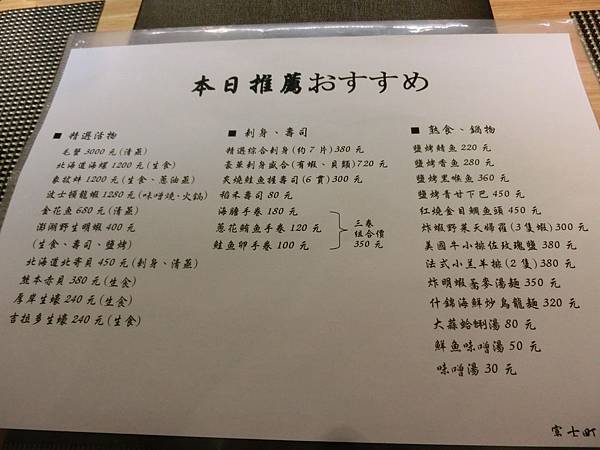 本日推薦おすすめ
■ 精選活物
毛蟹 3000元(清蒸)
北海道海螺 1200元(生食)
象拔蚌 1200元(生食、蔥油蒸)
波士頓龍蝦 1280元(味噌燒、火鍋)
金花魚 680元(清蒸)
澎湖野生明蝦 400元
(生食、壽司、鹽烤)
北海道北寄貝 450元(刺身、清蒸)
熊本赤貝 380元(生食)
厚岸生蠔 240元(生食)
吉拉多生蠔 240元(生食)
■ 刺身、壽司
精選綜合刺身(約7片)380元
豪華刺身盛合(有蝦、貝類)720元
炙燒鮭魚握壽司(6貫)300元
稻禾壽司 80元
海膽手卷 180元
蔥花鮪魚手卷 120元
鮭魚卵手卷 100元
三卷
組合價
350元
■ 熟食、鍋物
鹽烤鯖魚 220元
鹽烤香魚 280元
鹽烤黑喉魚 360元
鹽烤青甘下巴 450元
紅燒金目鯛魚頭 450元
炸蝦野菜天婦羅(3隻蝦)300元
美國牛小排佐玫瑰鹽 380元
法式小羔羊排(2隻)380元
炸明蝦蕎麥湯麵 350元
什錦海鮮炒烏龍麵 320元
大蒜蛤蜊湯 80元
鮮魚味噌湯 50元
味噌湯 30元
富士町